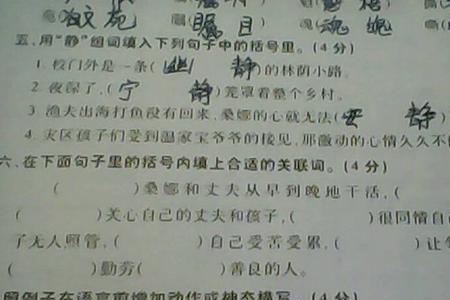 蚊 苑 瞩 目 魂 媿
五、用“静”组词填入下列句子中的括号里。(4分)
1. 校门外是一条(幽 静)的林荫小路。
2. 夜深了,(宁 静)笼罩着整个乡村。
3 渔夫出海打鱼没有回来,桑娜的心就无法(安 静)
4. 灾区孩子们受到温家宝爷爷的接见,那激动的心情久久不
六、在下面句子里的括号内填上合适的关联词。(4分)
( )桑娜和丈夫从早到晚地干活,(
( )关心自己的丈夫和孩子,( )很同情自
了无人照管,( )自己受苦受累,( )让
( )勤劳( )善良的人。
照例子在语言前增加动作或神态描写。(4分)